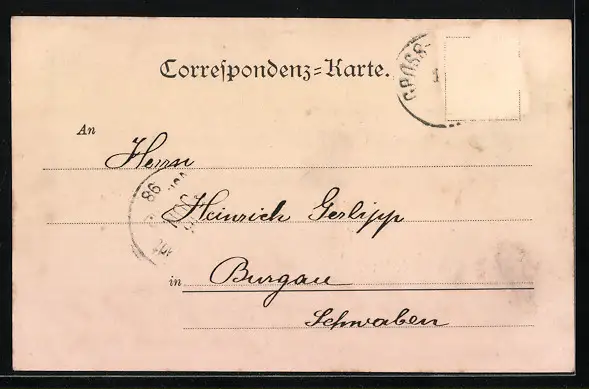 Correspondenz=Karte.
GROSS-
An
Herrn
98
Heinrich Gerlipp
in Burgau
Schwaben